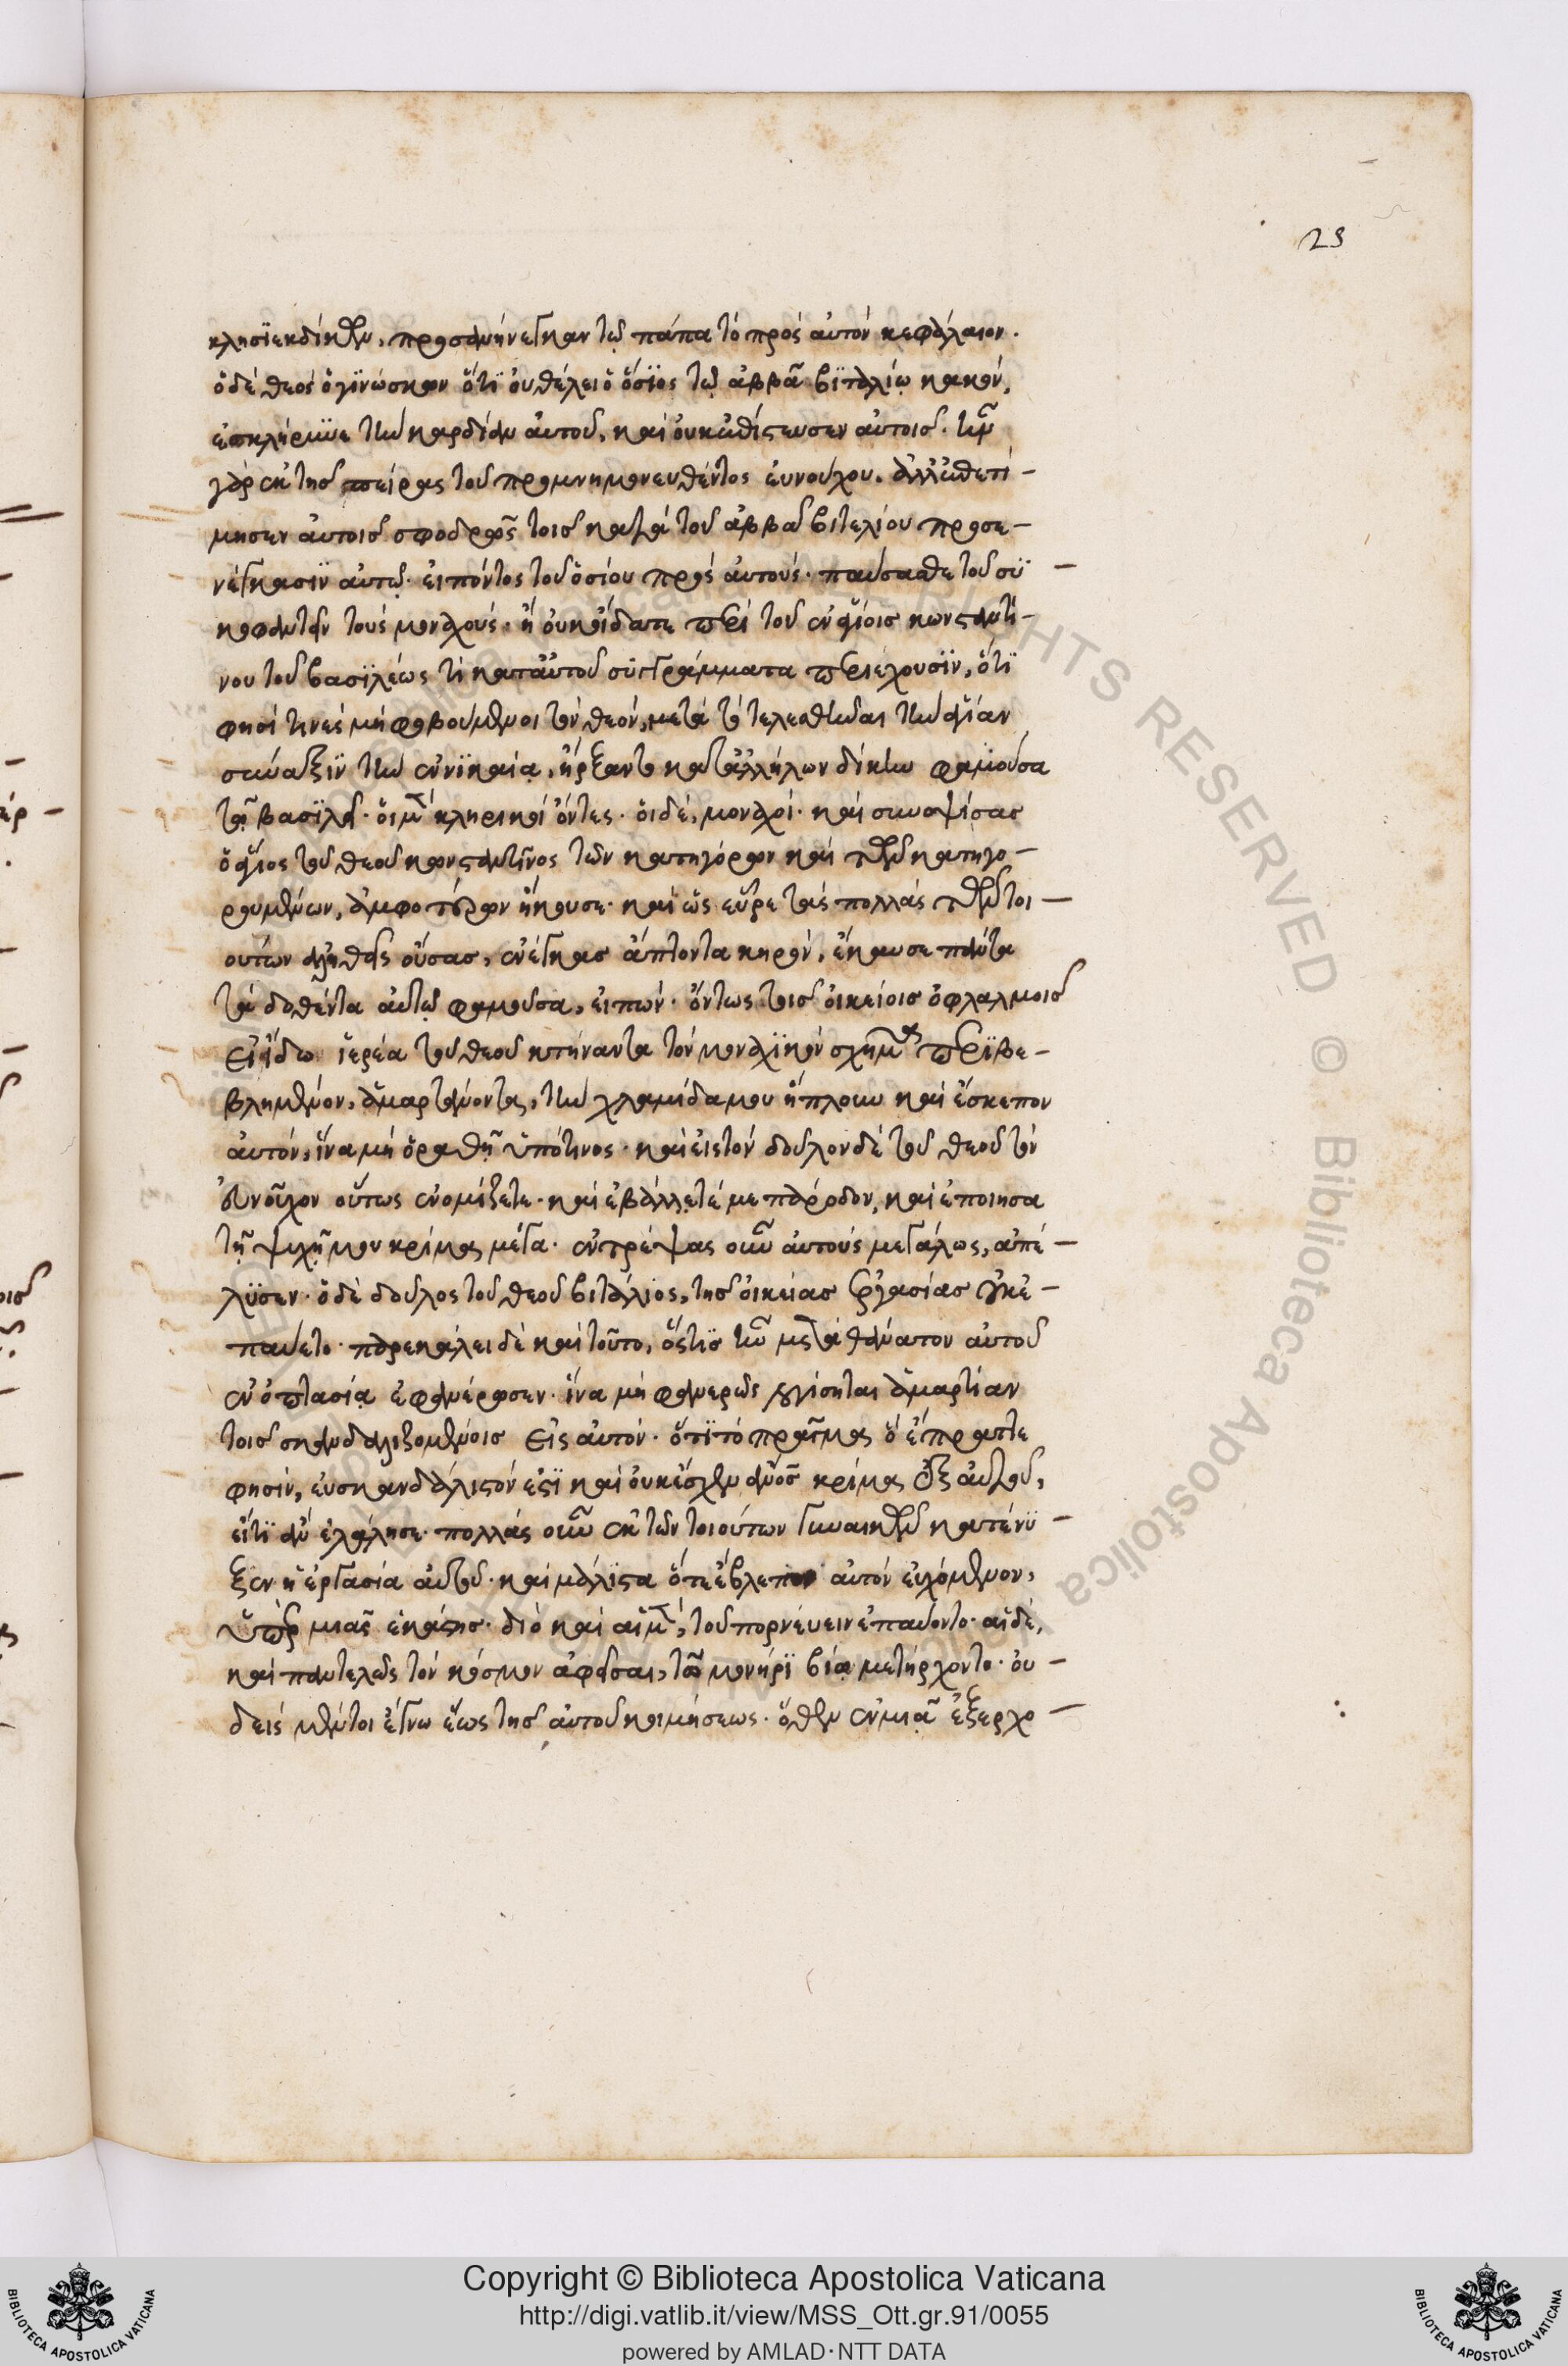 23
κλησϊεκδίκων, προσανήνεγκαν τῷ πάπα τὸ πρὸς αὐτὸν κεφάλαιον.
ὁ δὲ θεὸς ὁ γϊνώσκων ὅτϊ οὐ θέλει ὁ ὅσϊος τῷ ἀββᾶ βϊταλίῳ κακόν,
ἐσκλήρυνε τὴν καρδίαν αὐτοῦ, καὶ οὐκ ἐπίστευσεν αὐτοῖς.
γὰρ ἐκ τῆς πείρας τοῦ προμνημονευθέντος εὐνούχου. ἀλλ' ἐπετί–
μησεν αὐτοῖς σφοδρῶς τοῖς κατὰ τοῦ ἀββᾶ βιταλίου προσε–
νέγκασϊν αὐτῷ. εἰπόντος τοῦ ὁσίου πρὸς αὐτούς. παύσασθε τοῦ συ–
κοφαντεῖν τοὺς μοναχούς. ἢ οὐκ οἴδατε περὶ τοῦ ἐν ἁγίοις κωνσταντί–
νου τοῦ βασϊλέως τί κατ' αὐτοῦ συγγράμματα περιέχουσϊν, ὅτϊ
φησί τινες μὴ φοβούμενοι τὸν θεόν, μετὰ τὸ τελεσθῆναι τὴν ἁγίαν
σύναξϊν τὴν ἐν νϊκαίᾳ, ἤρξαντο κατ' ἀλλήλων δίκην φαμοῦσα
τῷ βασϊλεῖ. οἱ μὲν κληρικοὶ ὄντες. οἱ δέ, μοναχοί. καὶ συναψίσας
ὁ ἅγιος τοῦ θεοῦ κωνσταντῖνος τῶν κατηγόρων καὶ τῶν κατηγο–
ρουμένων, ἀμφοτέρων ἤκουσε. καὶ ὡς εὗρε τὰς πολλὰς τῶν τοι–
ούτων ἀληθεῖς οὔσας, ἐνέγκας ἅπτοντα κηρόν, ἔκαυσε πάντα
τὰ δοθέντα αὐτῷ φαμοῦσα, εἰπών. ὄντως τοῖς οἰκείοις ὀφλαλμοῖς
εἰ εἴδον ἱερέα τοῦ θεοῦ ἢ τινα τὸν μοναχϊκὸν σχῆμα περϊβε–
βλημένον, ἁμαρτάνοντα, τὴν χλαμίδα μου ἥπλουν καὶ ἔσκεπον
αὐτόν, ἵνα μὴ ὁραθῇ ὑπό τινος. καὶ εἰς τὸν δοῦλον δὲ τοῦ θεοῦ τὸν
εὐνοῦχον οὕτως ἐνομίζετε. καὶ ἐβάλλετέ με πάροδον, καὶ ἐποίησα
τῇ ψυχῇ μου κρίμα μέγα. ἐντρέψας οὖν αὐτοὺς μεγάλως, ἀπέ–
λϋσεν. ὁ δὲ δοῦλος τοῦ θεοῦ βιτάλιος, τῆς οἰκείας ἐργασίας οὐκ ἐ–
παύετο. παρεκάλει δὲ καὶ τοῦτο, ὅστις ἦν μετὰ θάνατον αὐτοῦ
ἐν ὀπτασίᾳ ἐφανέρωσεν. ἵνα μὴ φανερῶς λογίσηται ἁμαρτίαν
τοῖς σκανδαλιζομένοις εἰς αὐτόν. ὅτϊ τὸ πρᾶγμα ὃ ἔπραττε
φησίν, εὐσκανδάλιστόν ἐστϊ καὶ οὐκ ἔσχεν ἄνος κρίμα ἐξ αὐτοῦ,
εἴ τϊ ἂν ἐλάλησε. πολλὰς οὖν ἐκ τῶν τοιούτων γυναικῶν κατένϋ–
ξεν ἡ ἐργασία αὐτοῦ. καὶ μάλϊστα ὅτε ἔβλεπον αὐτὸν εὐχόμενον,
ὑπὲρ μιᾶς ἑκάστης. διὸ καὶ αἱ μέν, τοῦ πορνεύειν ἐπαύοντο. αἱ δέ,
καὶ παντελῶς τὸν κόσμον ἀφεῖσαι, τῷ μονήρϊ βίῳ μετήρχοντο. οὐ–
δεὶς μέντοι ἔγνω ἕως τῆς αὐτοῦ κοιμήσεως. ὅθεν ἐν μιᾷ ἐξερχο–
Copyright © Biblioteca Apostolica Vaticana
http://digi.vatlib.it/view/MSS_Ott.gr.91/0055
powered by AMLAD·NTT DATA